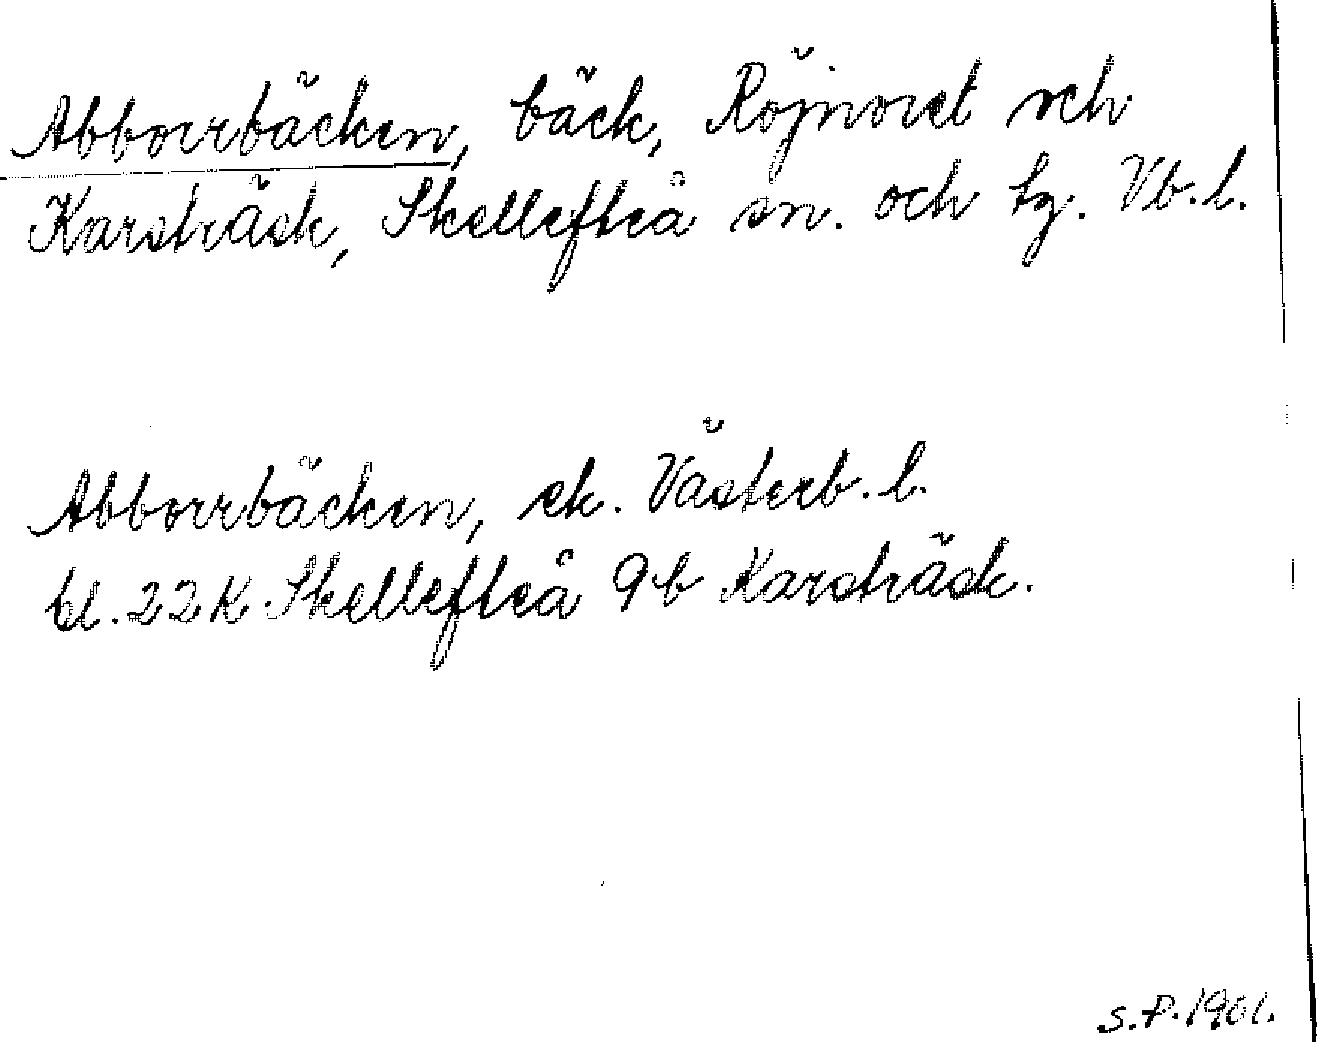 Abborrbäcken, bäck, Röjnoret och
Karsträsk, Skellefteå sn. och tg. Vb. l.
Abborrbäcken, ek. Västerb. l.
bl. 22K Skellefteå 9b Karsträsk.
S.P. 1961.